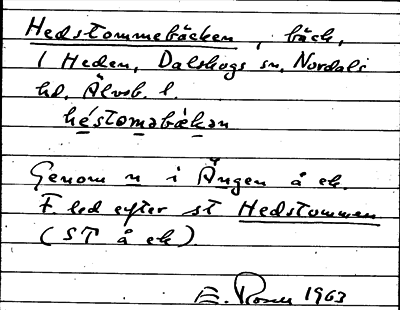 Hedstommebäcken, bäck,
l Heden, Dalskogs sn, Nordals
hd, Älvsb. l.
héstoməbækən
Genom n i Ängen å ek.
F. led efter st Hedstommen
(ST å ek).
E. Rosen 1963